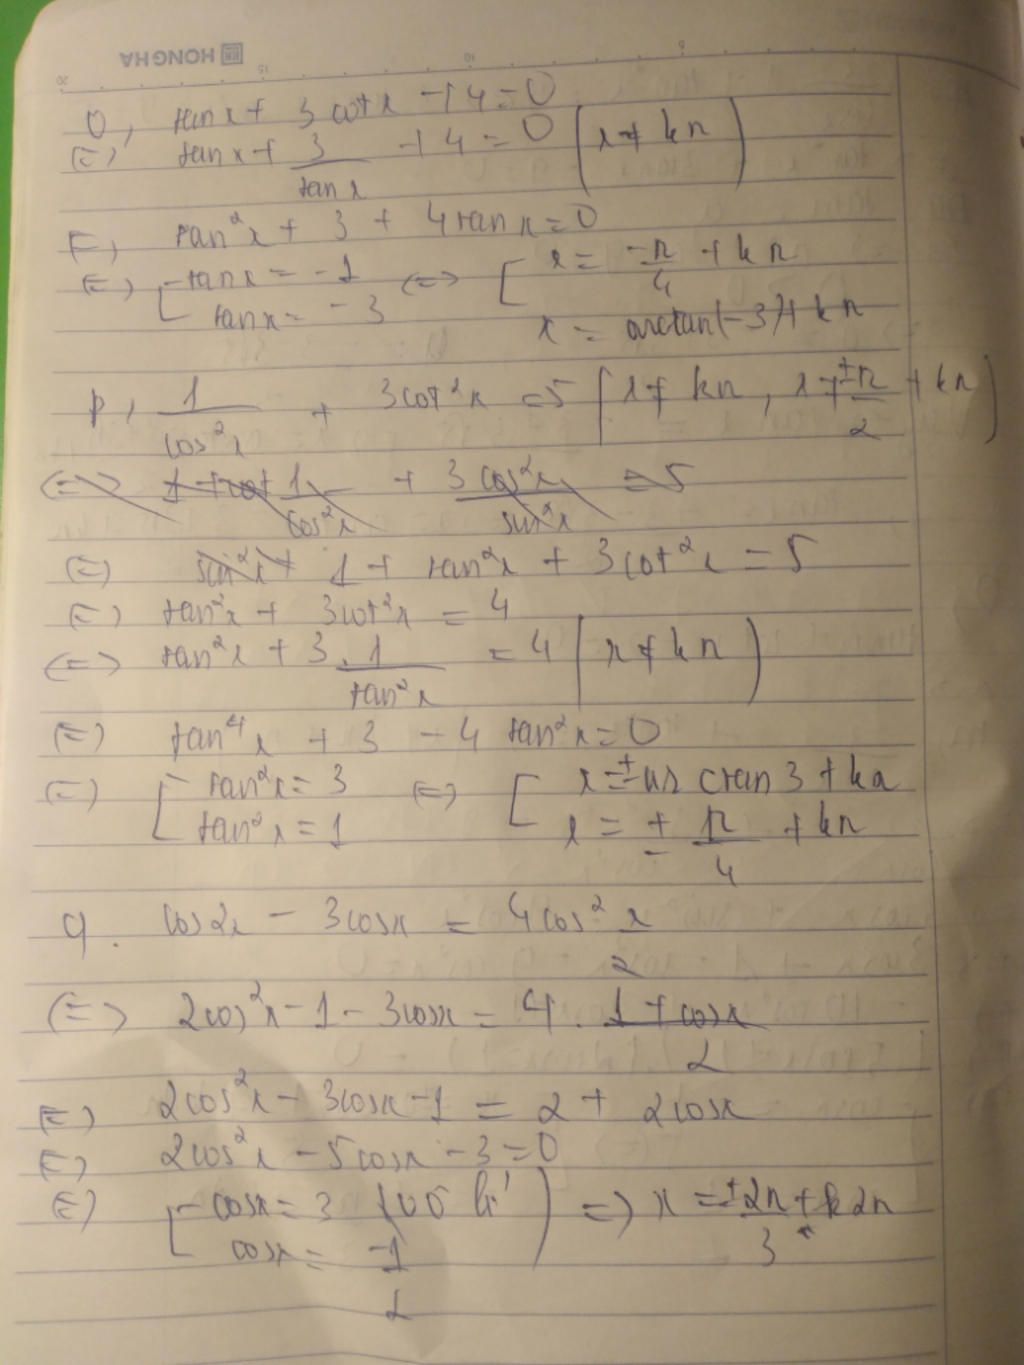 HONGHA
o, tanx + 3cotx + 4 = 0
(=) tanx + 3/tanx + 4 = 0 (x ≠ kπ)
(=) tan²x + 3 + 4tanx = 0
(=) [ tanx = -1 (=> [ x = -π/4 + kπ
tanx = -3 x = arctan(-3) + kπ
p, 1/cos²x + 3cot²x = 5 (x ≠ kπ, x ≠ ±π/2 + kπ)
(=> 1 + cot 1/cos²x + 3cos²x/sin²x = 5
(=) sin²x + 1 + tan²x + 3cot²x = 5
(=) tan²x + 3cot²x = 4
(=> tan²x + 3.1/tan²x = 4 (x ≠ kπ)
(=) tan⁴x + 3 - 4tan²x = 0
(=) [ tan²x = 3 (=> [ x = ±arctan3 + kπ
tan²x = 1 x = ±π/4 + kπ
q. cos2x - 3cosx = 4cos² x/2
(=> 2cos²x - 1 - 3cosx = 4 . (1 + cosx)/2
(=) 2cos²x - 3cosx - 1 = 2 + 2cosx
(=) 2cos²x - 5cosx - 3 = 0
(=) [ cosx = 3 (vô lí) => x = ±2π/3 + k2π
cosx = -1/2